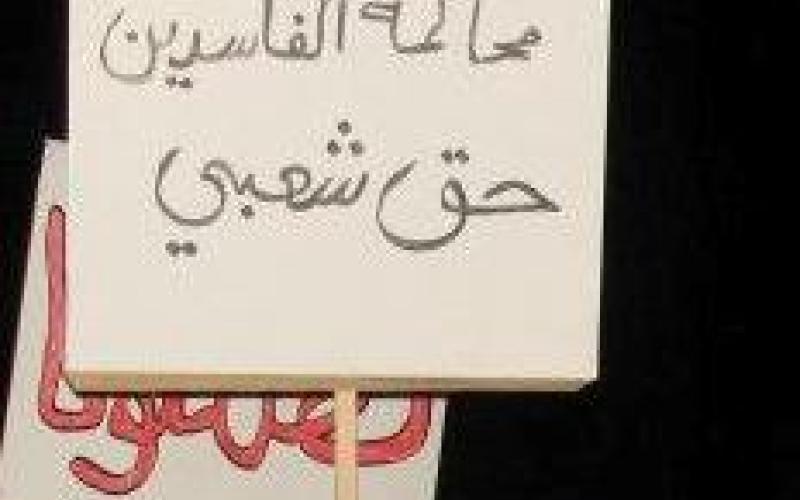 محاكمة الفاسدين
حق شعبي